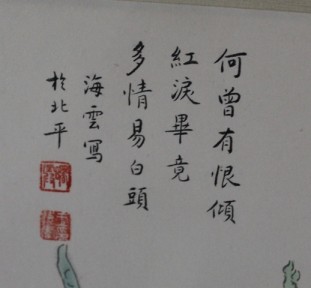 何曾有恨傾
紅淚畢竟
多情易白頭
海雲寫
於北平